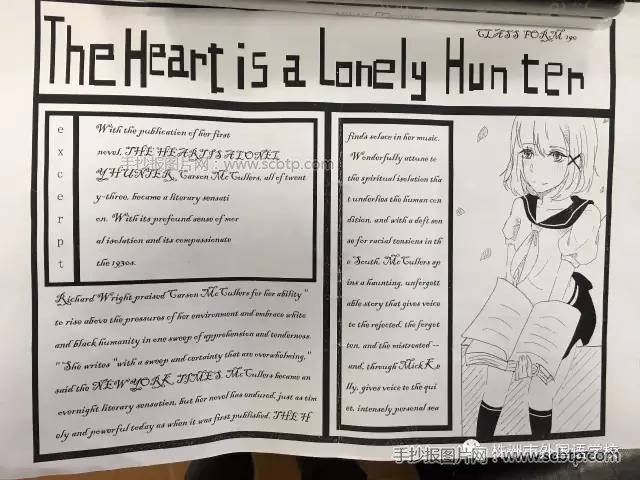 CLASS FORM 190
The Heart is a Lonely Hunter
excerpt
With the publication of her first
novel, THE HEART IS A LONEL
Y HUNTER, Carson McCullers, all of twent
y-three, became a literary sensati
on. With its profound sense of mor
al isolation and its compassionate
the 1930s.
Richard Wright praised Carson McCullers for her ability "
to rise above the pressures of her environment and embrace white
and black humanity in one sweep of apprehension and tenderness.
" She writes "with a sweep and certainty that are overwhelming,"
said the NEW YORK TIMES. McCullers became an
overnight literary sensation, but her novel has endured, just as tim
ely and powerful today as when it was first published. THE H
finds solace in her music.
Wonderfully attune to
the spiritual isolation tha
t underlies the human con
dition, and with a deft sen
se for racial tensions in th
e South, McCullers sp
ins a haunting, unforgett
able story that gives voice
to the rejected, the forgot
ten, and the mistreated --
and, through Mick Ke
lly, gives voice to the qui
et, intensely personal sea
手抄报图片网:www.scbtp.com
株洲市外国语学校
手抄报图片网:www.scbtp.com